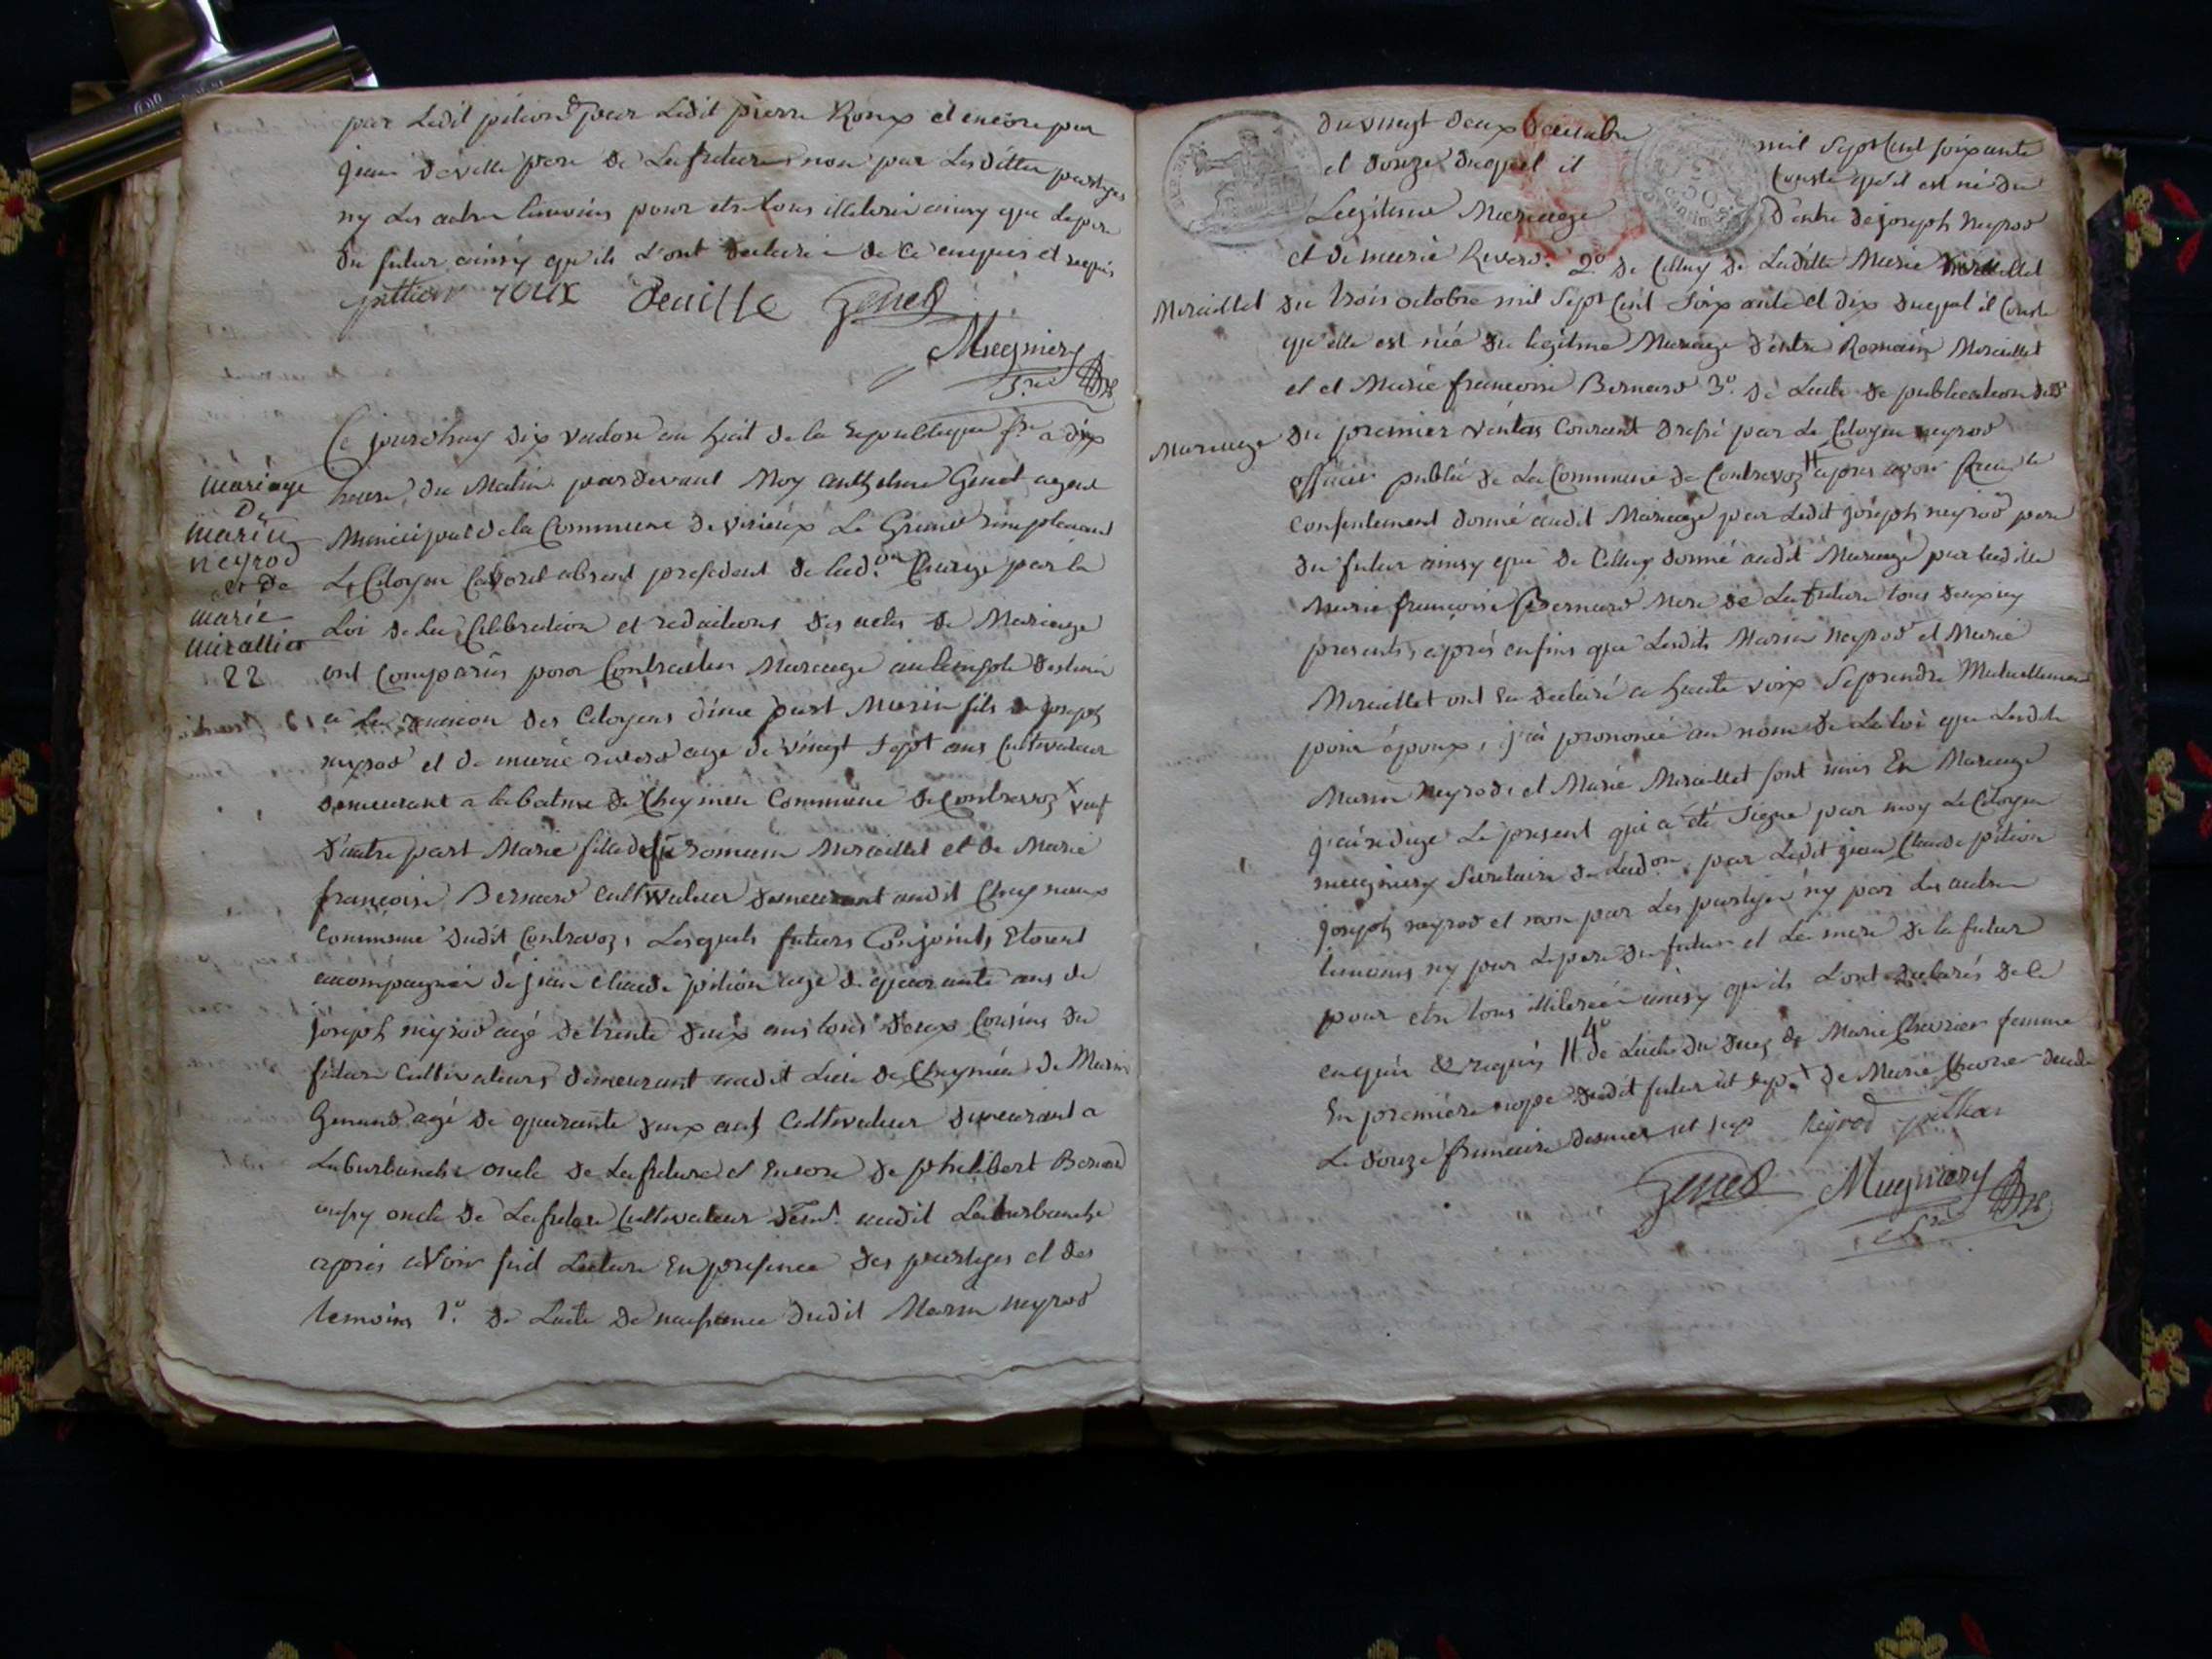 par Ledit pition & par Ledit pierre Roux et encore par
jean deville pere de La future, non par Les dittes partyes
ny Les autres temoins pour etre tous illiterés ainsy que Le pere
du futur ainsy qu'ils L'ont declaré de ce enquis et requis
pittion roux deville Genet
Mugniery
S.re
mariage
De
marin
neyrod
et De
marie
mirallier
22
Ce jourdhuy dix vantose an huit de la republique f.se a dix
heures du Matin pardevant Moy anthelme Genet agent
Municipal de la Commune de virieux Le Grand remplacant
Le Citoyen absent president de lad.on Charge par la
Loi de La Celebration et redactions des actes de Mariage
ont Comparus pour Contracter Mariage au temple destiné
a La reunion des Citoyens d'une part Marin fils de joseph
neyrod et de marie reverd age de vingt sept ans Cultivateur
demeurant a la balme de Cheymieu Commune de Contrevoz x veuf
D'autre part Marie fille de fû romain Miraillet et de Marie
francoise Bernard Cultivateur demeurant audit
Commune dudit Contrevoz, Lesquels futurs Conjoints Etoient
accompagnés de jean Claude pition age de quarante ans de
joseph neyrod agé de trente deux ans tous deux Cousins du
futur Cultivateurs demeurant audit Lieu de Cheymieu de Marin
Genand agé de quarante deux ans Cultivateur demeurant a
Laburbanche oncle de La future et Encore de philibert Bernard
aussy oncle de La future Cultivateur dem.t audit Laburbanche
après avoir fait Lecture En presence des partyes et des
temoins 1.o de Lacte de naissance dudit Marin neyrod
du vingt deux mil Sept Cent soixante
et douze duquel il Conste qu'il est né du
Legitime Mariage d'entre de joseph neyrod
et de marie Reverd. 2.o de Celluy de Laditte Marie
Miraillet du trois octobre mil Sept Cent Soixante et dix duquel il Conste
qu'elle est née du legitime Mariage d'entre Romain Miraillet
et et Marie francoise Bernard 3.o de Lacte de publication dud
Mariage du premier ventos Courant dressé par Le Citoyen neyrod
officier public de La Commune de Contrevoz # apres avoir le
Consentement donné audit Mariage par Ledit joseph neyrod pere
du futur ainsy que de Celluy donné audit Mariage par laditte
Marie francoise Bernard Mere de La future tous deux icy
presents, après enfins que Lesdits Marin neyrod et Marie
Miraillet ont Eu declaré a haute voix Se prendre Mutuellement
pour époux, j'ai prononcé au nom de La loi que Lesdits
Marin Neyrod, et Marie Miraillet sont unis En Mariage
j'ai redigé Le present qui a été Signe par moy Le Citoyen
mugniery Secretaire de Lad.on, par Ledit jean Claude pition
joseph neyrod et non par Les partyes ny par Les autres
temoins ny par Le pere du futur et La mere de la future
pour etre tous illiterés ainsy qu'ils L'ont declarés de Ce
enquis & requis # 4o de Lacte du de Marie Chavrier femme
En premiere nope dudit futur de Marie decedé
Le douze frimaire dernier neyrod pition
Genet Mugniery
S.re